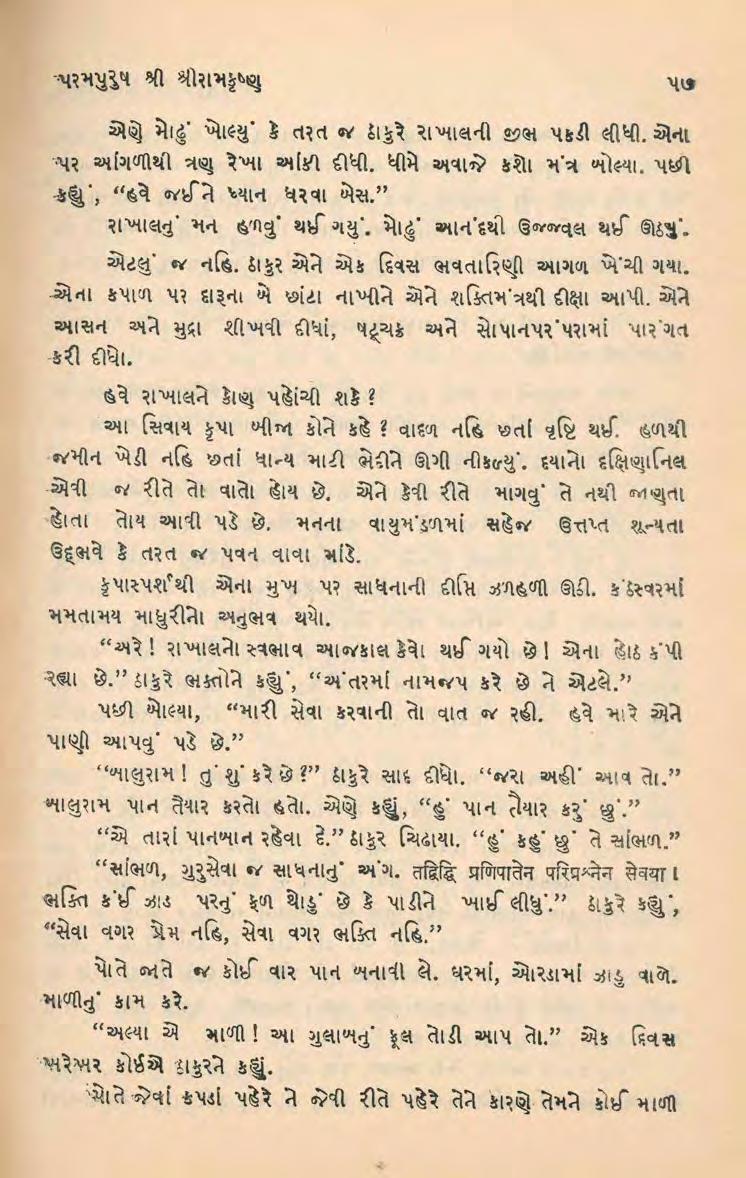 પરમપુરુષ શ્રી શ્રીરામકૃષ્ણ ૫૭
એણે મોઢું ખોલ્યું કે તરત જ ઠાકુરે રાખાલની જીભ પકડી લીધી. એના
પર આંગળીથી ત્રણ રેખા આંકી દીધી. ધીમે અવાજે કશો મંત્ર બોલ્યા. પછી
કહ્યું, “હવે જઈને ધ્યાન ધરવા બેસ.”
રાખાલનું મન હળવું થઈ ગયું. મોઢું આનંદથી ઉજ્જવલ થઈ ઊઠ્યું.
એટલું જ નહિ. ઠાકુર એને એક દિવસ ભવતારિણી આગળ ખેંચી ગયા.
એના કપાળ પર દારૂના બે છાંટા નાખીને એને શક્તિમંત્રથી દીક્ષા આપી. એને
આસન અને મુદ્રા શીખવી દીધાં, ષટ્ચક્ર અને સોપાનપરંપરામાં પારંગત
કરી દીધો.
હવે રાખાલને કોણ પહોંચી શકે ?
આ સિવાય કૃપા બીજા કોને કહે ? વાદળ નહિ છતાં વૃષ્ટિ થઈ. હળથી
જમીન ખેડી નહિ છતાં ધાન્ય માટી ભેદીને ઊગી નીકળ્યું. દયાનો દક્ષિણાનિલ
એવી જ રીતે તો વાતો હોય છે. એને કેવી રીતે માગવું તે નથી જાણતા
હોતા તોય આવી પડે છે. મનના વાયુમંડળમાં સહેજ ઉત્તપ્ત શૂન્યતા
ઉદ્દભવે કે તરત જ પવન વાવા માંડે.
કૃપાસ્પર્શથી એના મુખ પર સાધનાની દીપ્તિ ઝળહળી ઊઠી. કંઠસ્વરમાં
મમતામય માધુરીનો અનુભવ થયો.
“અરે ! રાખાલનો સ્વભાવ આજકાલ કેવો થઈ ગયો છે ! એના હોઠ કંપી
રહ્યા છે.” ઠાકુરે ભક્તોને કહ્યું, “અંતરમાં નામજપ કરે છે ને એટલે.”
પછી બોલ્યા, “મારી સેવા કરવાની તો વાત જ રહી. હવે મારે એને
પાણી આપવું પડે છે.”
“બાલુરામ ! તું શું કરે છે ?” ઠાકુરે સાદ દીધો. “જરા અહીં આવ તો.”
બાલુરામ પાન તૈયાર કરતો હતો. એણે કહ્યું, “હું પાન તૈયાર કરું છું.”
“એ તારાં પાનબાન રહેવા દે.” ઠાકુર ચિઢાયા. “હું કહું છું તે સાંભળ.”
“સાંભળ, ગુરુસેવા જ સાધનાનું અંગ. तद्विद्धि प्रणिपातेन परिप्रश्नेन सेवया ।
ભક્તિ કંઈ ઝાડ પરનું ફળ થોડું છે કે પાડીને ખાઈ લીધું.” ઠાકુરે કહ્યું,
“સેવા વગર પ્રેમ નહિ, સેવા વગર ભક્તિ નહિ.”
પોતે જાતે જ કોઈ વાર પાન બનાવી લે. ઘરમાં, ઓરડામાં ઝાડુ વાળે.
માળીનું કામ કરે.
“અલ્યા એ માળી ! આ ગુલાબનું ફૂલ તોડી આપ તો.” એક દિવસ
ખરેખર કોઈએ ઠાકુરને કહ્યું.
પોતે જેવાં કપડાં પહેરે ને જેવી રીતે પહેરે તેને કારણે તેમને કોઈ માળી